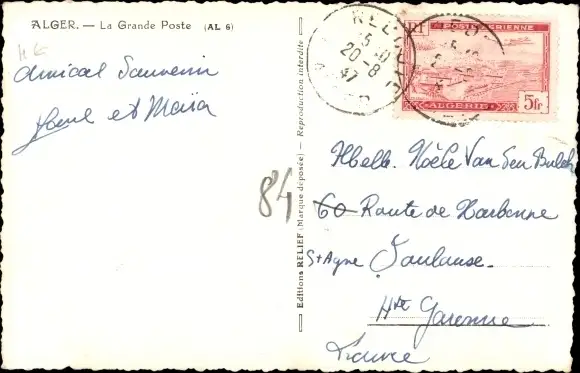 ALGER. — La Grande Poste (AL 6)
Amical Souvenir
Paul et Maïa
Editions RELIEF (Marque déposée) — Reproduction interdite
20-8
47
RF POSTE AERIENNE
ALGERIE 5fr
84
Melle. Noële Van den Bulch
60 Route de Narbonne
St Agne Toulouse.
Hte Garonne
France